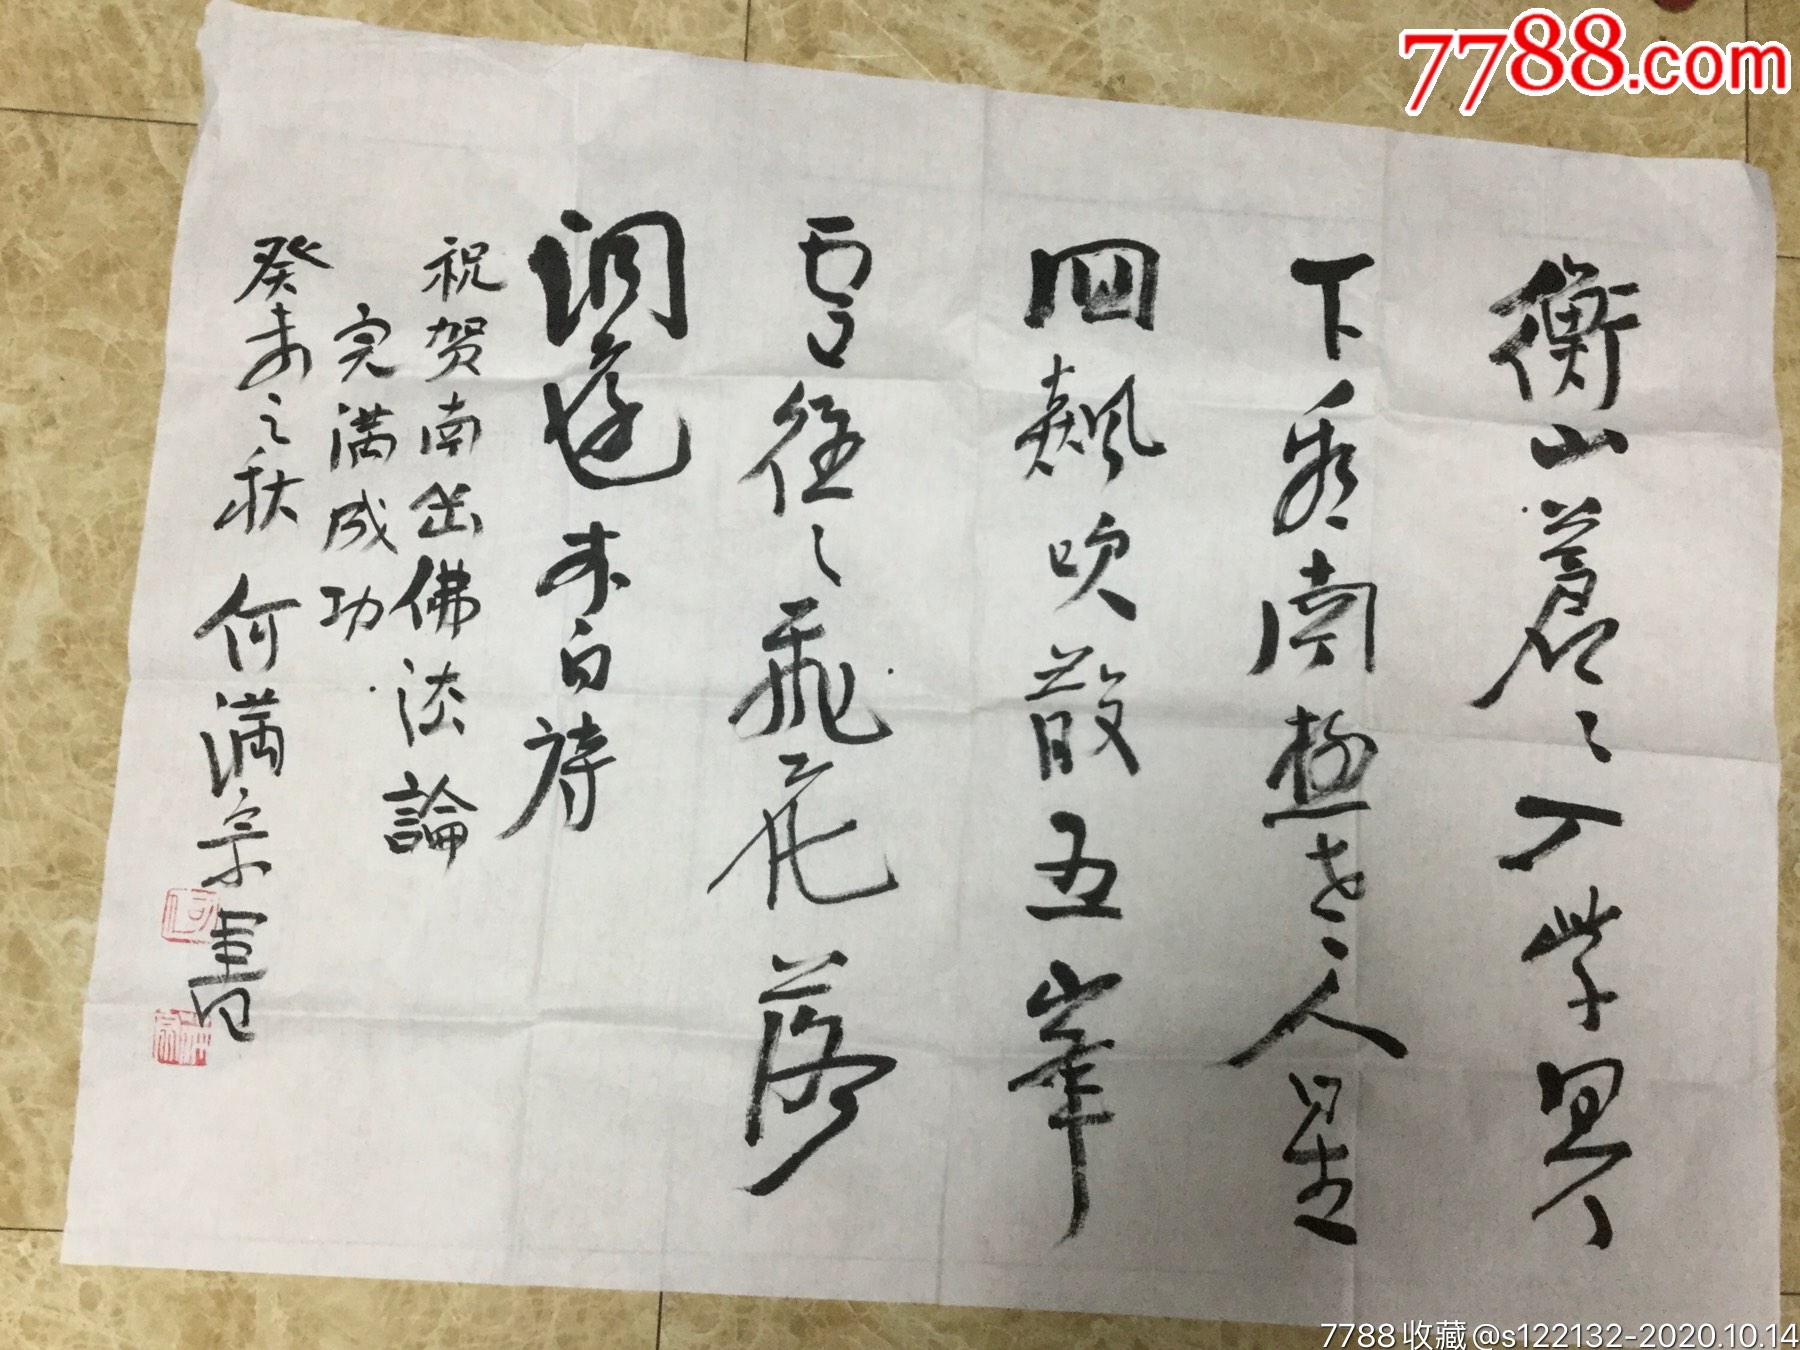 7788.com
衡山蒼々入紫冥
下看南極老人星
回飙吹散五峯
雪往々飛花落
洞庭 李白詩
祝贺南岳佛法論
完满成功
癸未之秋 何满宗書
7788收藏@s122132-2020.10.14